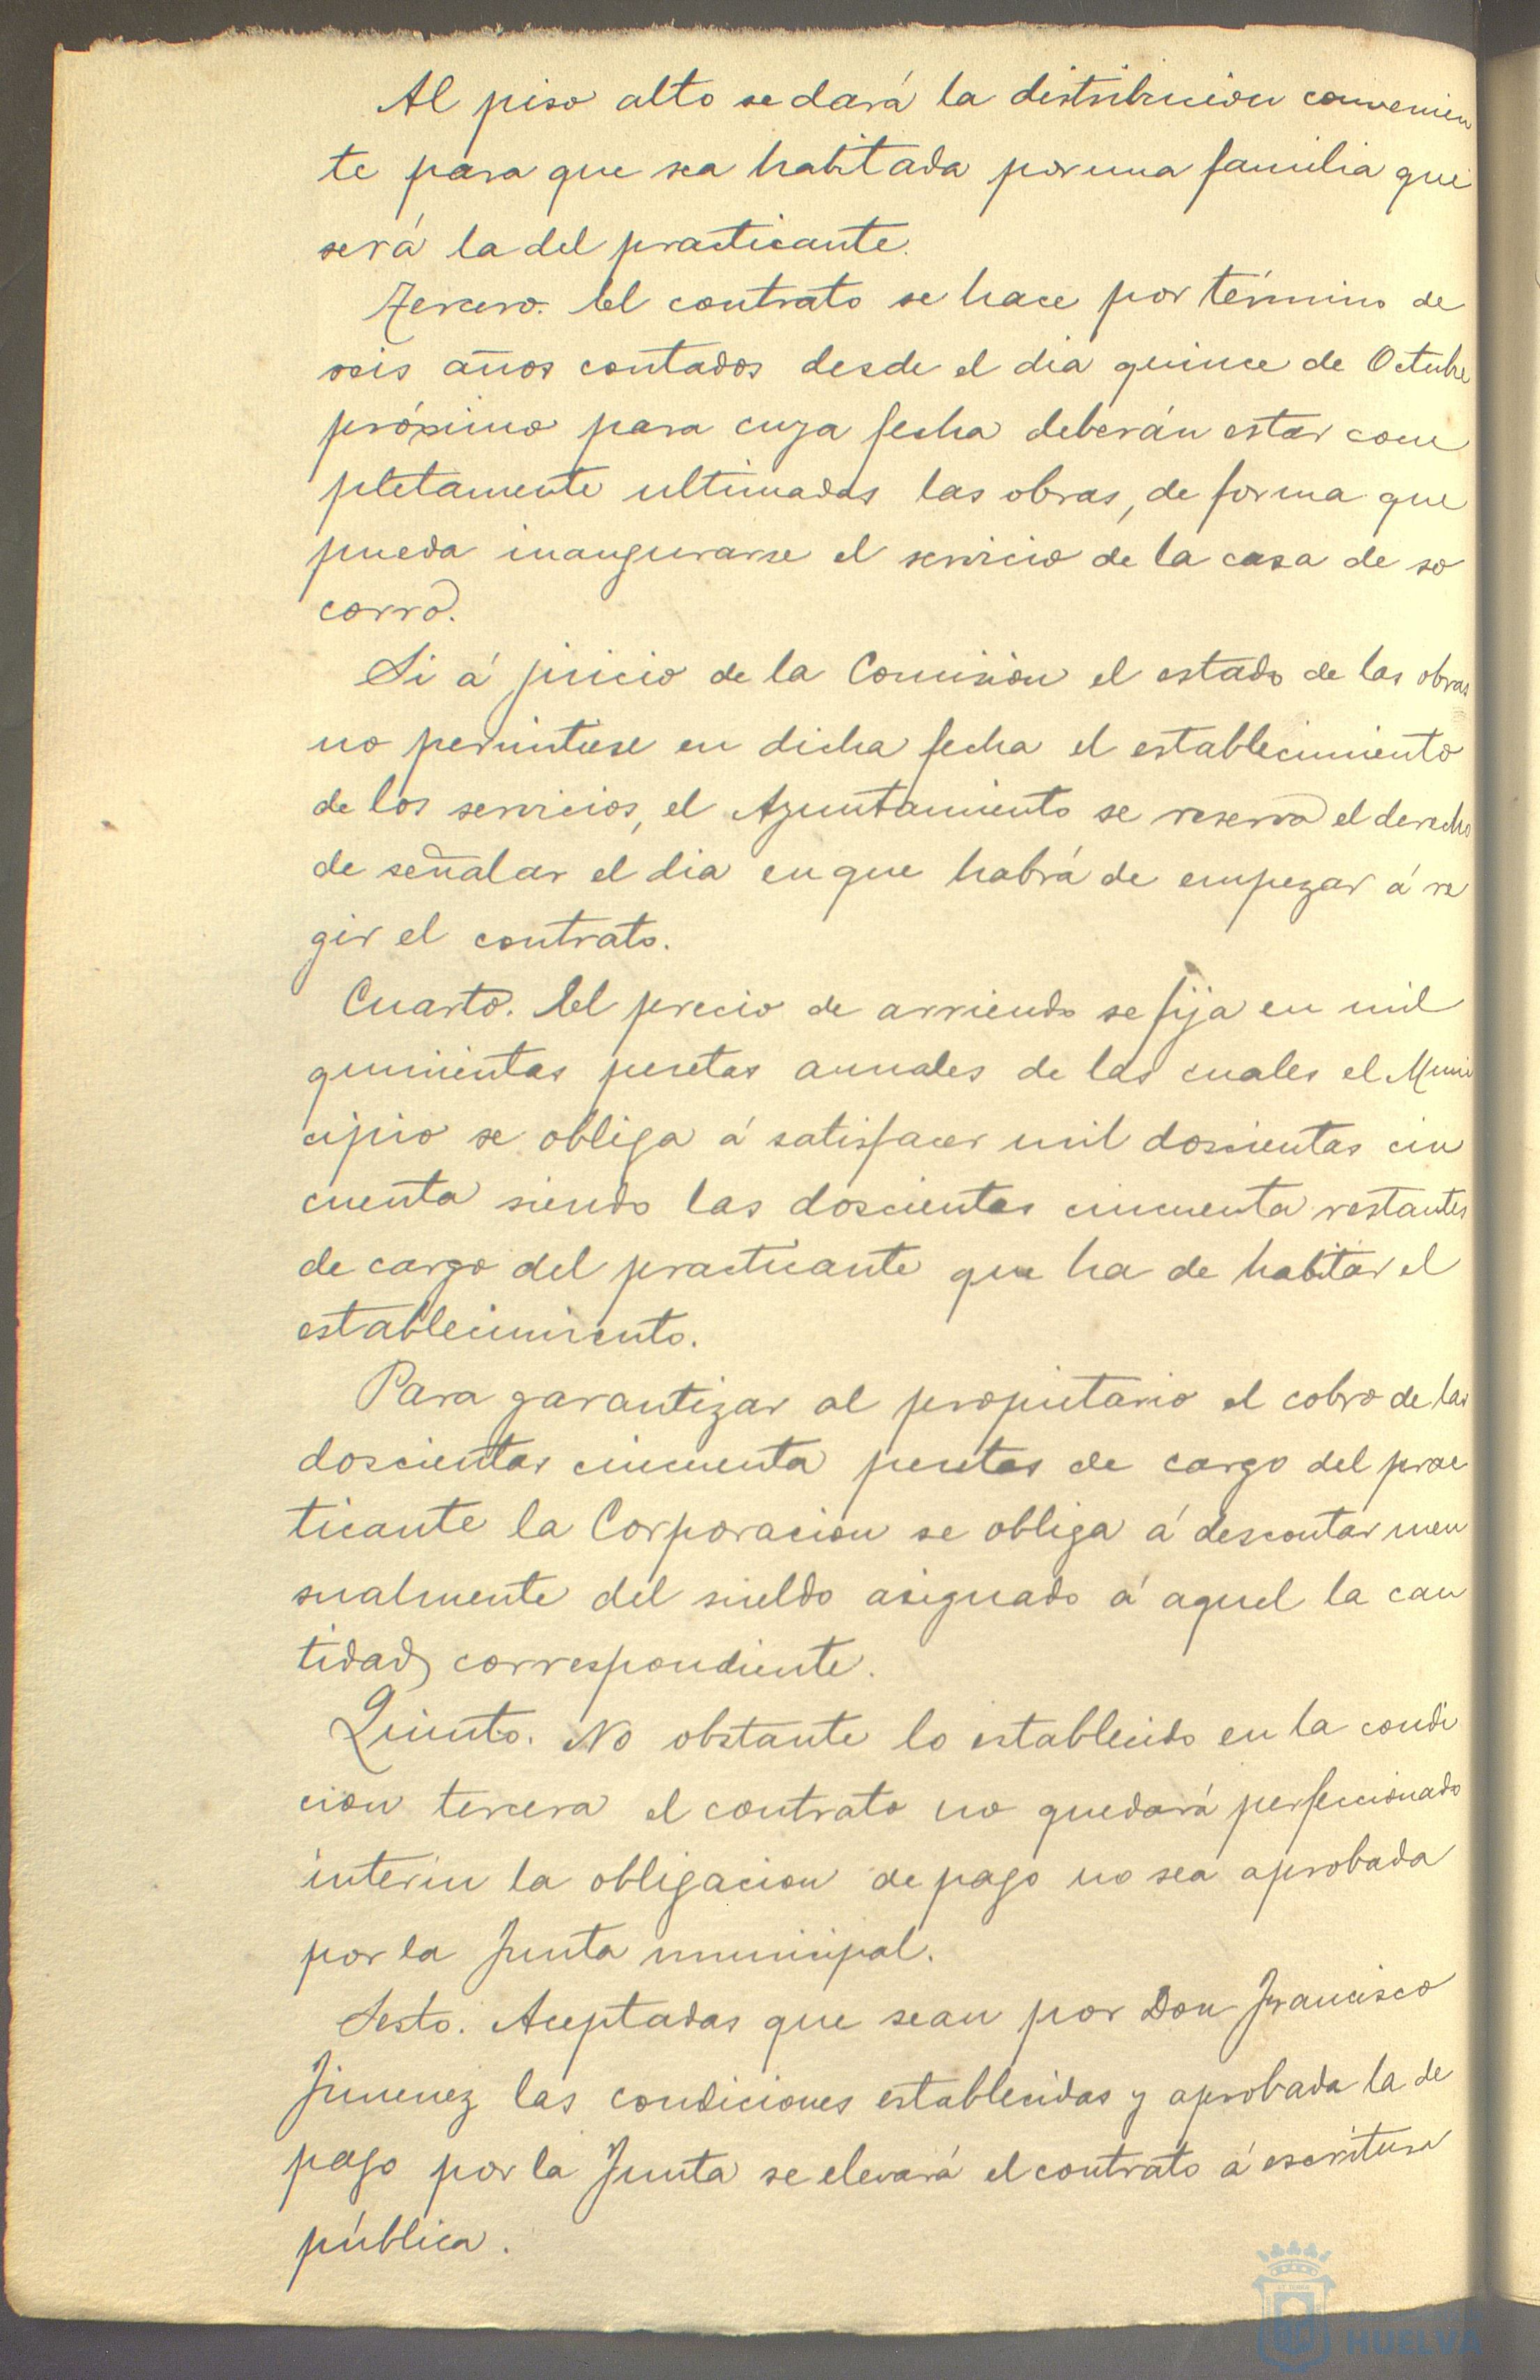 Al piso alto se dará la distribucion convenien
te para que sea habitada por una familia que
será la del practicante.
Tercero. El contrato se hace por término de
seis años contados desde el dia quince de Octubre
próximo para cuya fecha deberán estar com
pletamente ultimadas las obras, de forma que
pueda inaugurarse el servicio de la casa de so
corro.
Si á juicio de la Comisión el estado de las obras
no permitiese en dicha fecha el establecimiento
de los servicios, el Ayuntamiento se reserva el derecho
de señalar el dia en que habrá de empezar á re
gir el contrato.
Cuarto. El precio de arriendo se fija en mil
quinientas pesetas anuales de las cuales el Muni
cipio se obliga á satisfacer mil doscientas cin
cuenta siendo las doscientas cincuenta restantes
de cargo del practicante que ha de habitar el
establecimiento.
Para garantizar al propietario el cobro de las
doscientas cincuenta pesetas de cargo del prac
ticante la Corporacion se obliga á descontar men
sualmente del sueldo asignado á aquel la can
tidad correspondiente.
Quinto. No obstante lo establecido en la condi
cion tercera el contrato no quedará perfeccionado
interin la obligacion de pago no sea aprobada
por la Junta municipal.
Sesto. Aceptadas que sean por Don Francisco
Jimenez las condiciones establecidas y aprobada la de
pago por la Junta se elevará el contrato á escritura
pública.
HUELVA